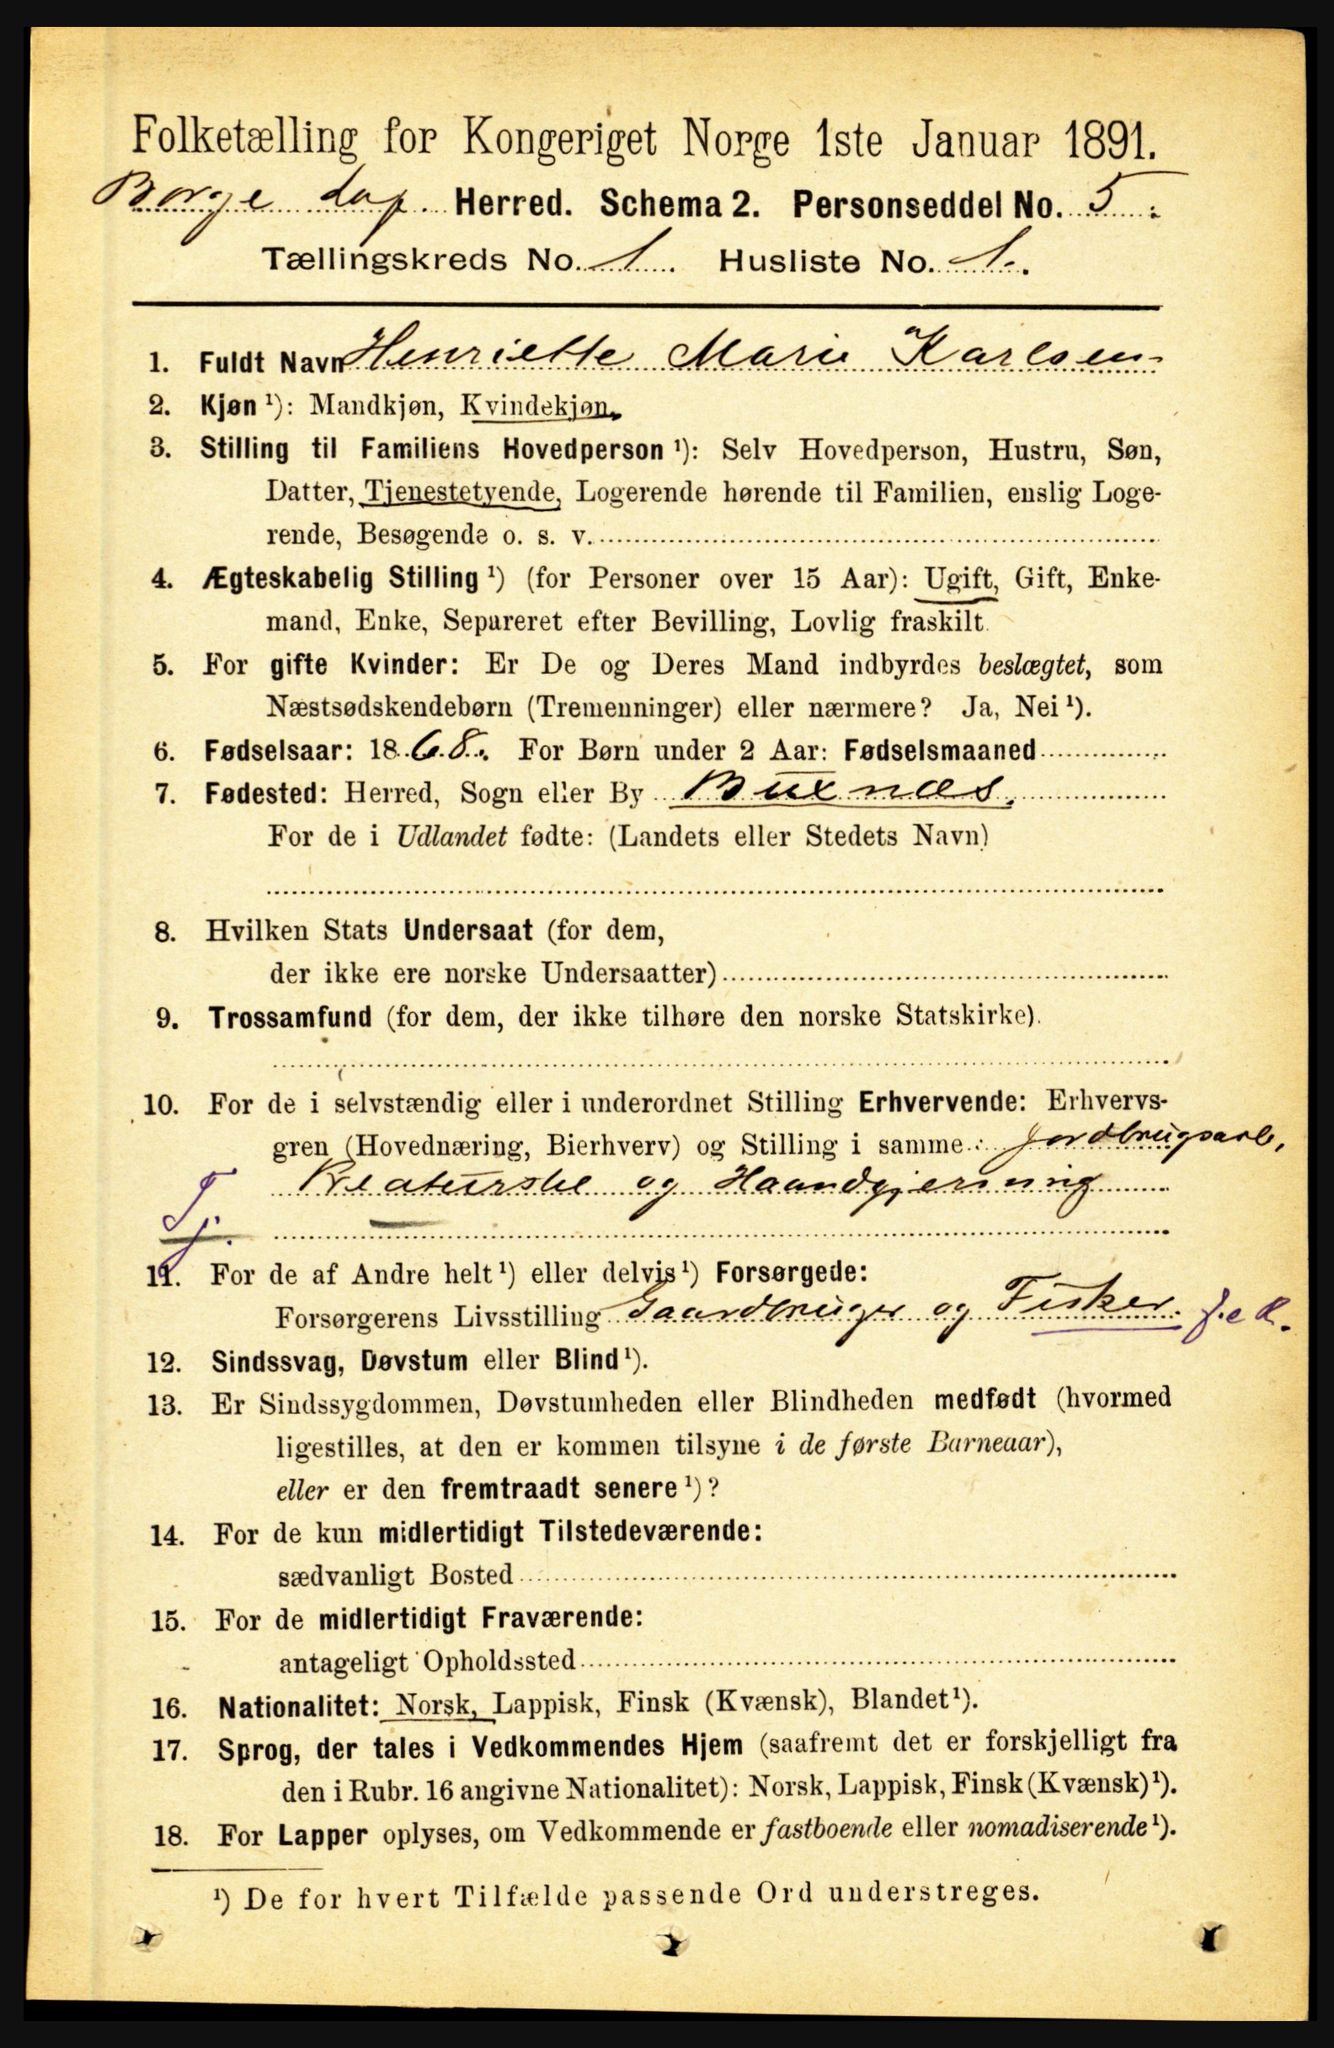 Folketælling for Kongeriget Norge 1ste Januar 1891.
Borge Lof. Herred. Schema 2. Personseddel No. 5.
Tællingskreds No. 1. Husliste No. 1.
1. Fuldt Navn Henriette Marie Karlsen
2. Kjøn ¹): Mandkjøn, Kvindekjøn.
3. Stilling til Familiens Hovedperson ¹): Selv Hovedperson, Hustru, Søn,
Datter, Tjenestetyende, Logerende hørende til Familien, enslig Loge-
rende, Besøgende o. s. v.
4. Ægteskabelig Stilling ¹) (for Personer over 15 Aar): Ugift, Gift, Enke-
mand, Enke, Separeret efter Bevilling, Lovlig fraskilt.
5. For gifte Kvinder: Er De og Deres Mand indbyrdes beslægtet, som
Næstsødskendebørn (Tremenninger) eller nærmere? Ja, Nei ¹).
6. Fødselsaar: 1868. For Børn under 2 Aar: Fødselsmaaned
7. Fødested: Herred, Sogn eller By Buxnæs.
For de i Udlandet fødte: (Landets eller Stedets Navn)
8. Hvilken Stats Undersaat (for dem,
der ikke ere norske Undersaatter)
9. Trossamfund (for dem, der ikke tilhøre den norske Statskirke).
10. For de i selvstændig eller i underordnet Stilling Erhvervende: Erhvervs-
gren (Hovednæring, Bierhverv) og Stilling i samme: Jordbrugsarb,
Kreaturstel og Haandgjerning
Tj.
11. For de af Andre helt ¹) eller delvis ¹) Forsørgede:
Forsørgerens Livsstilling Gaardbruger og Fisker.
12. Sindssvag, Døvstum eller Blind ¹).
13. Er Sindssygdommen, Døvstumheden eller Blindheden medfødt (hvormed
ligestilles, at den er kommen tilsyne i de første Barneaar),
eller er den fremtraadt senere ¹)?
14. For de kun midlertidigt Tilstedeværende:
sædvanligt Bosted
15. For de midlertidigt Fraværende:
antageligt Opholdssted
16. Nationalitet: Norsk, Lappisk, Finsk (Kvænsk), Blandet ¹).
17. Sprog, der tales i Vedkommendes Hjem (saafremt det er forskjelligt fra
den i Rubr. 16 angivne Nationalitet): Norsk, Lappisk, Finsk (Kvænsk) ¹).
18. For Lapper oplyses, om Vedkommende er fastboende eller nomadiserende ¹).
¹) De for hvert Tilfælde passende Ord understreges.